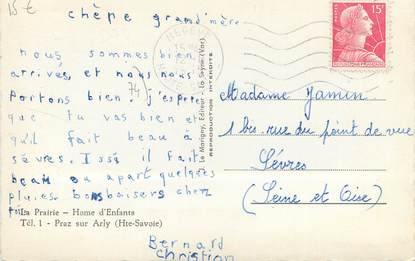 15€
chèpe grand'mère
nous sommes bien
arrivés et nous nous
portons bien. j'espère
74
que tu vas bien et
qu'il fait beau à
sèvres. Issi il fait
beau ou apart quelques
pluies. bons baisers cher
La Prairie – Home d'Enfants
Tél. 1 - Praz sur Arly (Hte-Savoie)
Bernard
Christian
Le Marigny, Editeur - La Seyne (Var)
REPRODUCTION INTERDITE
15F
Madame Jamin
1 bis. rue du point de vue
Sèvres
(Seine et Oise)